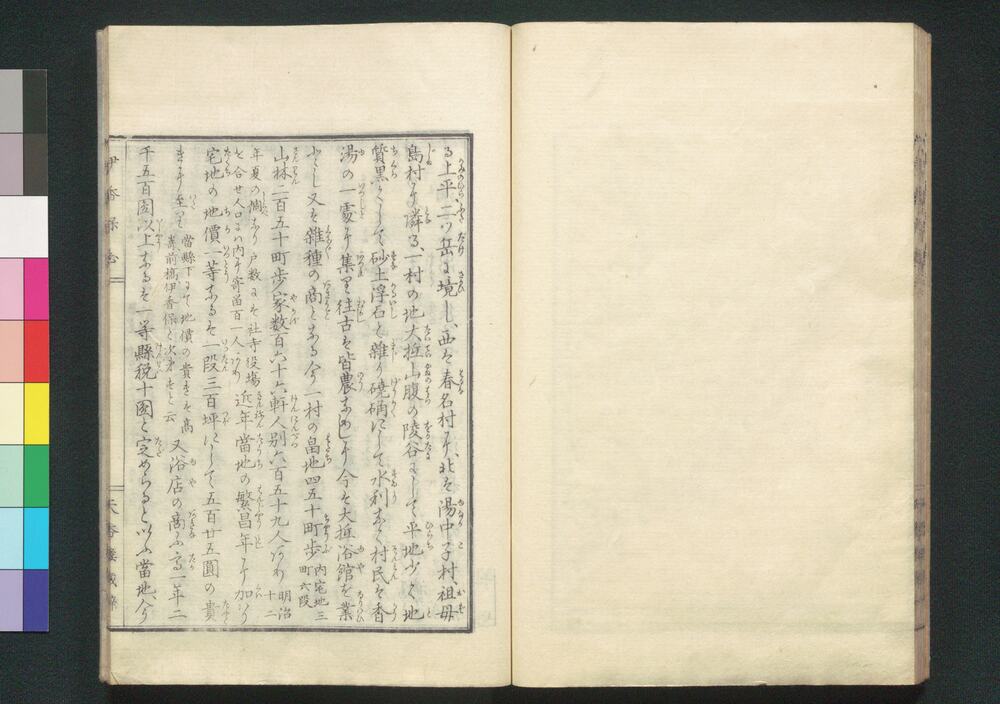 る上平二ツ岳に境し、西は春名村に、北は湯中子村、祖母
島村に隣る、一村の地大抵山腹の陵谷にして平地少く地
質黒くして砂土浮石を雜り磽确にして水利なく村民は香
湯の一處に集り往古は皆農なりしに今は大抵浴館を業
とし又は雜種の商となる今一村の畠地四五十町歩内宅地三町六段
山林二百五十町歩家数百六十六軒人別六百五十九人あり明治十二
年夏の調なり戸数には社寺役場を合せ人口には内に寄留百一人あり近年當地の繁昌年に加はり
宅地の地價一等なるは一段三百坪にして五百廿五圓の貴
きに至り當縣下にて地價の貴きは高嵜前橋伊香保と次第せりと云又浴店の商ふ高一年二
千五百圓以上なるは一等縣税十圓と定めらると以ふ當地今
伊香保志
天香樓蔵梓